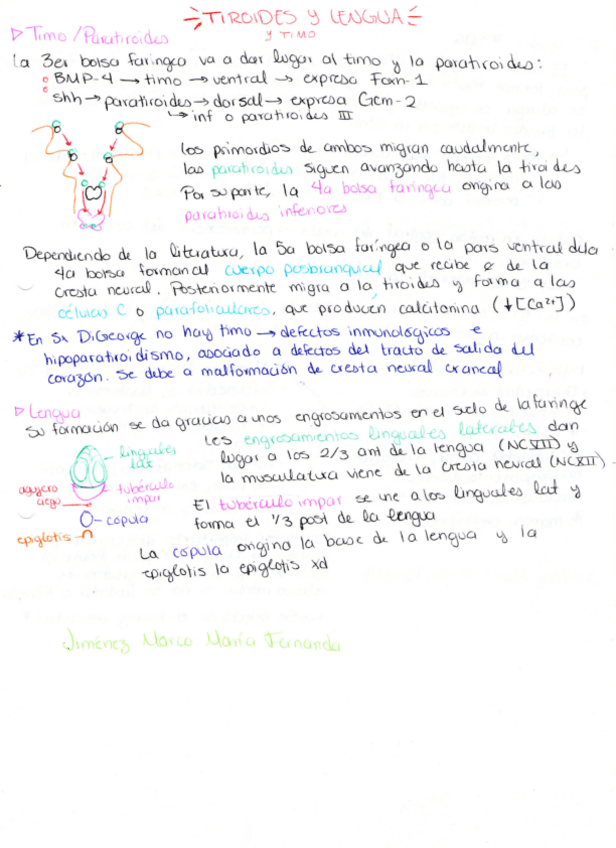 TIROIDES Y LENGUA
Y TIMO
Timo/Paratiroides
La 3er bolsa faríngea va a dar lugar al timo y la paratiroides:
BMP-4 → timo → ventral → expresa Foxn-1
shh → paratiroides → dorsal → expresa Gcm-2
↳ inf o paratiroides III
Los primordios de ambos migran caudalmente,
las paratiroides siguen avanzando hasta la tiroides
Por su parte, la 4a bolsa faríngea origina a las
paratiroides inferiores
Dependiendo de la literatura, la 5a bolsa faríngea o la pars ventral de la
4a bolsa forman al cuerpo posbranquial que recibe ¢ de la
cresta neural. Posteriormente migra a la tiroides y forma a las
células C o parafoliculares, que producen calcitonina (↓[Ca2+])
*En Sx DiGeorge no hay timo → defectos inmunológicos e
hipoparatiroidismo, asociado a defectos del tracto de salida del
corazón. Se debe a malformación de cresta neural craneal
Lengua
Su formación se da gracias a unos engrosamentos en el suelo de la faringe
Les engrosamientos linguales laterales dan
lugar a los 2/3 ant de la lengua (NC VII) y
la musculatura viene de la cresta neural (NC XII)
linguales
lat
agujero
ciego
tubérculo
impar
cópula
epiglotis
El tubérculo impar se une a los linguales lat y
forma el 1/3 post de la lengua
La cópula origina la base de la lengua y la
epiglotis la epiglotis xd
Jiménez Marco María Fernanda